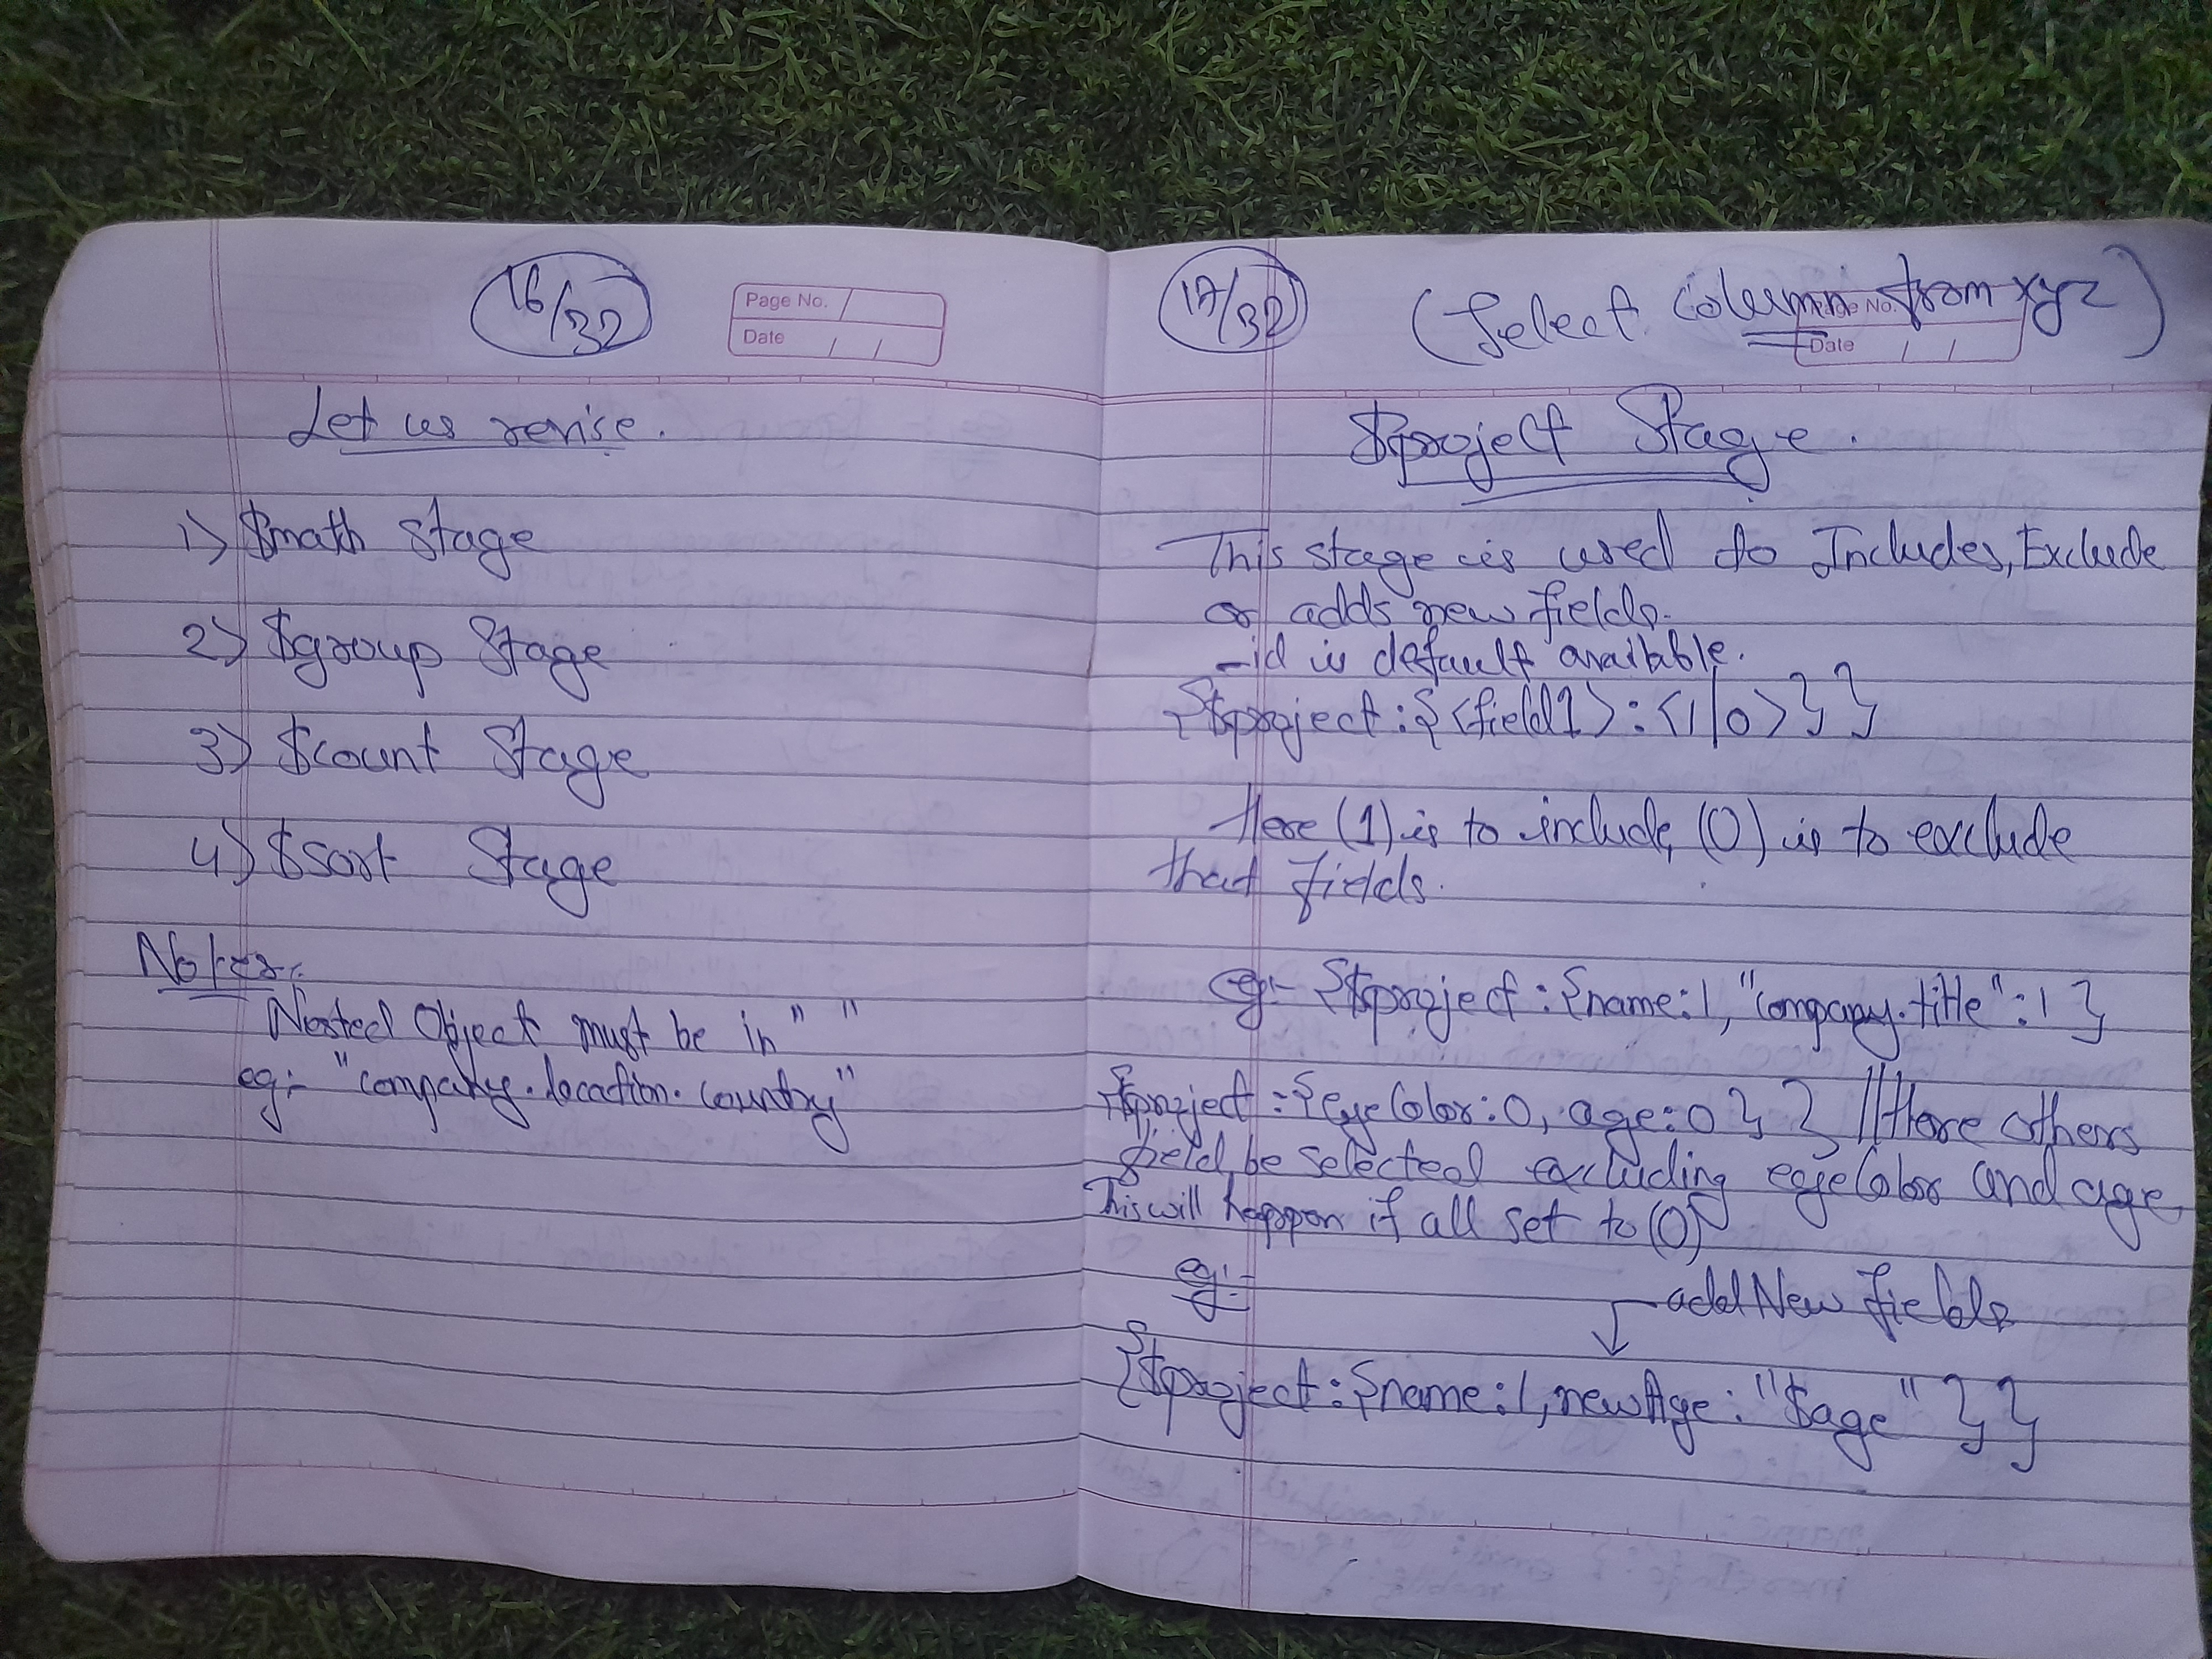 16/32
Page No.
Date / /
Let us revise.
1) $math Stage
2) $group Stage
3) $count Stage
4) $sort Stage
Notes:
Nested Object must be in " "
eg:- "company.location.country"
17/32 (Select column from xyz)
Date / /
$project Stage.
This stage is used to Includes, Exclude
or adds new fields.
_id is default available.
{$project:{<field1>:<1|0>}}
Here (1) is to include, (0) is to exclude
that fields.
eg:- {$project:{name:1,"company.title":1}}
{$project:{eyeColor:0, age:0}} // Here others
field be selected excluding eyeColor and age
This will happen if all set to (0)
eg:-
add New fields
{$project:{name:1,newAge:"$age"}}